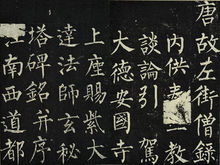 唐故左街僧
內供三教
談論引駕
大德安國寺
上座賜紫大
達法師玄秘
塔碑銘并序
江南西道都